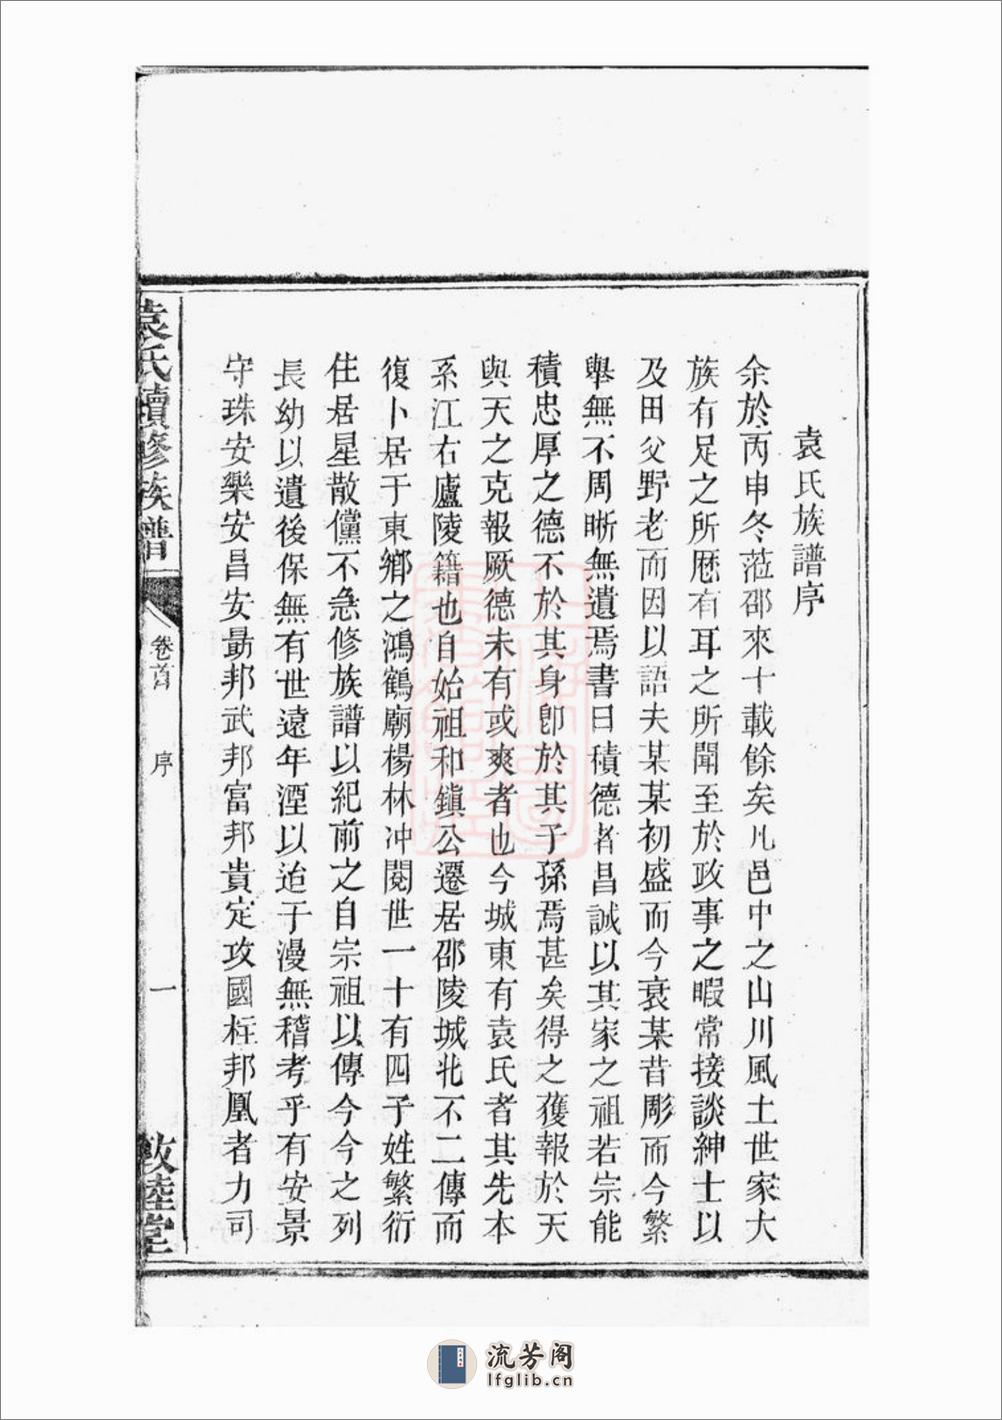 袁氏族譜序
余於丙申冬蒞邵來十載餘矣凡邑中之山川風土世家大
族有足之所歷有耳之所聞至於政事之暇常接談紳士以
及田父野老而因以語夫某某初盛而今衰某昔彫而今繁
舉無不周晰無遺焉書曰積德者昌誠以其家之祖若宗能
積忠厚之德不於其身卽於其子孫焉甚矣得之蒦報於天
與天之克報厥德未有或爽者也今城東有袁氏者其先本
系江右廬陵籍也自始祖和鎮公遷居邵陵城北不二傳而
復卜居于東鄉之鴻鶴廟楊林冲閱世一十有四子姓繁衍
住居星散儻不急修族譜以紀前之自宗祖以傳今今之列
長幼以遺後保無有世遠年湮以迨于漫無稽考乎有安景
守珠安樂安昌安勗邦武邦富邦貴定攻國枉邦凰者力司
袁氏續修族譜
卷首
序
一
敦睦堂
流芳阁
lfglib.cn